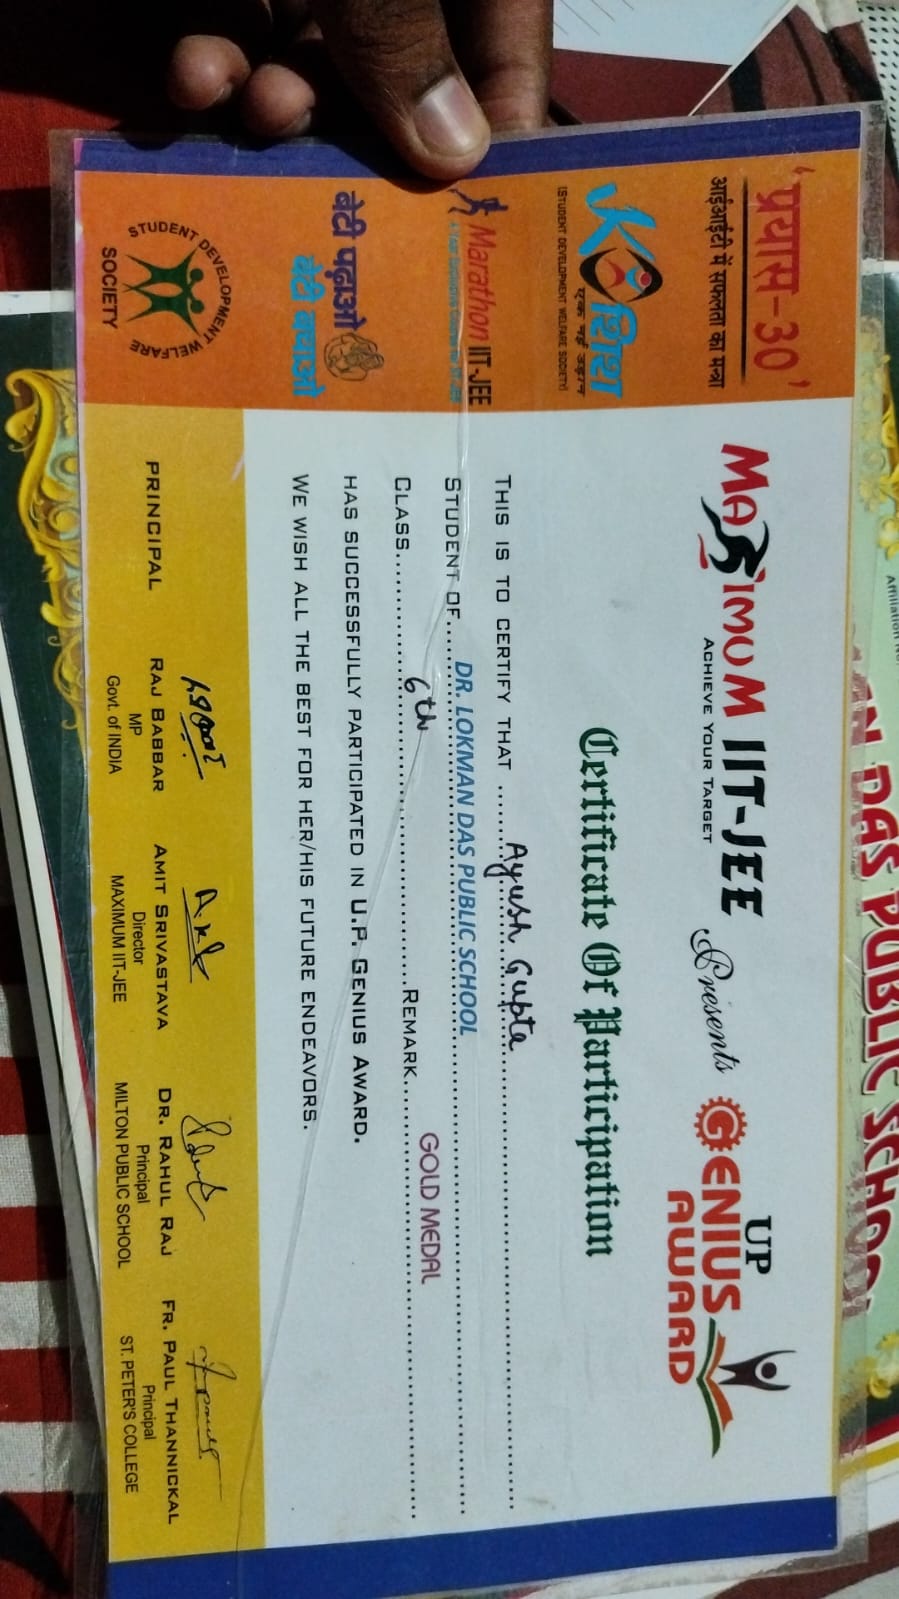 'प्रयास-30'
आईआईटी में सफलता का मन्त्रा
कोशिश
एक नई उड़ान
(STUDENT DEVELOPMENT WELFARE SOCIETY)
Marathon IIT-JEE
बेटी पढ़ाओ
बेटी बचाओ
STUDENT DEVELOPMENT WELFARE
SOCIETY
MAXIMUM IIT-JEE Presents UP GENIUS AWARD
ACHIEVE YOUR TARGET
Certificate Of Participation
THIS IS TO CERTIFY THAT ........Ayush Gupta........
STUDENT OF ........DR. LOKMAN DAS PUBLIC SCHOOL........
CLASS........6th........REMARK........GOLD MEDAL........
HAS SUCCESSFULLY PARTICIPATED IN U.P. GENIUS AWARD.
WE WISH ALL THE BEST FOR HER/HIS FUTURE ENDEAVORS.
PRINCIPAL
RAJ BABBAR
MP
Govt. of INDIA
AMIT SRIVASTAVA
Director
MAXIMUM IIT-JEE
DR. RAHUL RAJ
Principal
MILTON PUBLIC SCHOOL
FR. PAUL THANNICKAL
Principal
ST. PETER'S COLLEGE
Affiliation
DAS PUBLIC SCHOOL